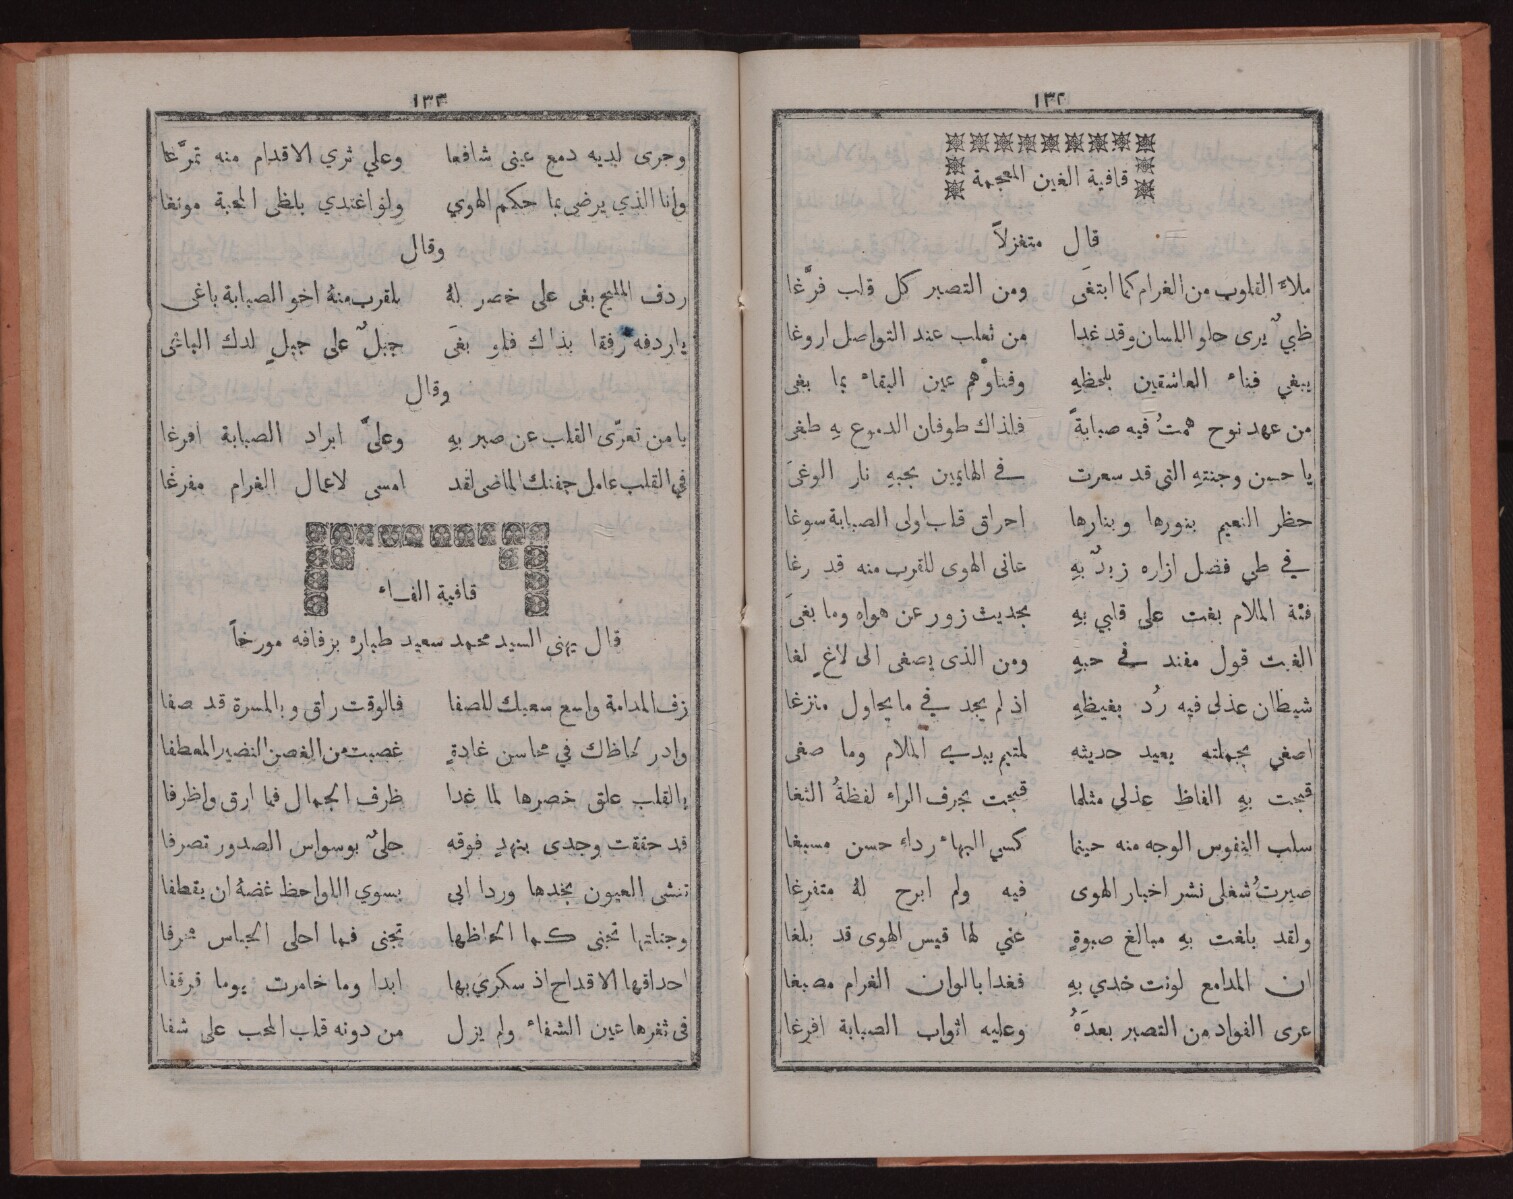 ١٣٢
قافية الغين المعجمة
قال متغزلاً
ملاء القلوب من الغرام كما ابتغَى ومن التصبر كل قلب فرَّغا
ظبيٌ يرى حلو اللسان وقد غدا من ثعلب عند التواصل اروغا
يبغي فناء العاشقين بلحظهِ وفناوْهم عين البقاء بما بغى
من عهد نوح همتُ فيه صبابةً فلذاك طوفان الدموع بهِ طغى
يا حسن وجنتهِ التي قد سعرت في الهايمين بحبهِ نار الوغَى
حظر النعيم بنورها وبنارها احراق قلب اولى الصبابة سوغا
في طي فضل ازاره زبدٌ بهِ عانى الهوى للقرب منه قد رغا
فئة الملام بغت على قلبي بهِ بحديث زور عن هواهِ وما بغَى
الغيت قول مفند في حبهِ ومن الذى يصغى الى لاغٍ لغا
شيطان عذلى فيه رُد بغيظهِ اذ لم يجد في ما يحاول منزغا
اصغي بجملته يعيد حديثه لمتيم يبدي الملام وما صغى
قبحت بهِ الفاظ عذلي مثلما قبحت بحرف الراء لفظةُ الثغا
سلب النفوس الوجه منه حينما كسي البهاء رداء حسن مسبغا
صيرتُ شغلى نشر اخبار الهوى فيه ولم ابرح لهُ متفرغا
ولقد بلغت بهِ مبالغ صبوةٍ عني لها قيس الهوى قد بلغا
ان المدامع لونت خدي بهِ فغدا بالوان الغرام مصبغا
عرى الفواد من التصبر بعدَهُ وعليه اثواب الصبابة افرغا
١٣٣
وجرى لديه دمع عينى شافعا وعلي ثري الاقدام منه تمرَّغا
وأنا الذي يرضى بما حكم الهوي ولو اغتدي بلظى المحبة موتغا
وقال
ردف المليح بغى على خصر لهُ بلقرب منهُ اخو الصبابة باغى
ياردفه رفقا بذاك فلو بغَى جبلٌ على جبلٍ لدك الباغى
وقال
يا من تعرّى القلب عن صبر بهِ وعليَّ ابراد الصبابة افرغا
في القلب عامل جفنك الماضى لقد امسى لاعمال الغرام مفرغا
قافية الفاء
قال يهني السيد محمد سعيد طباره بزفافه مورخاً
زف المدامة واسع سعيك للصفا فالوقت راق وبالمسرة قد صفا
وادر لحاظك في محاسن غادةٍ غصبت من الغصن النضير المعطفا
بالقلب علق خصرها لما غدا ظرف الجمال فما ارق واظرفا
قد حققت وجدى بنهدٍ فوقه حلىٌ بوسواس الصدور تصرفا
تنشى العيون بخدها وردا ابى بسوي اللواحظ غضهُ ان يقطفا
وجناتها تجنى كما الحاظها تجنى فما احلى الجناس محرفا
احداقها الاقداح اذ سكري بها ابدا وما خامرت يوما قرقفا
فى ثغرها عين الشفاء ولم يزل من دونه قلب المحب على شفا